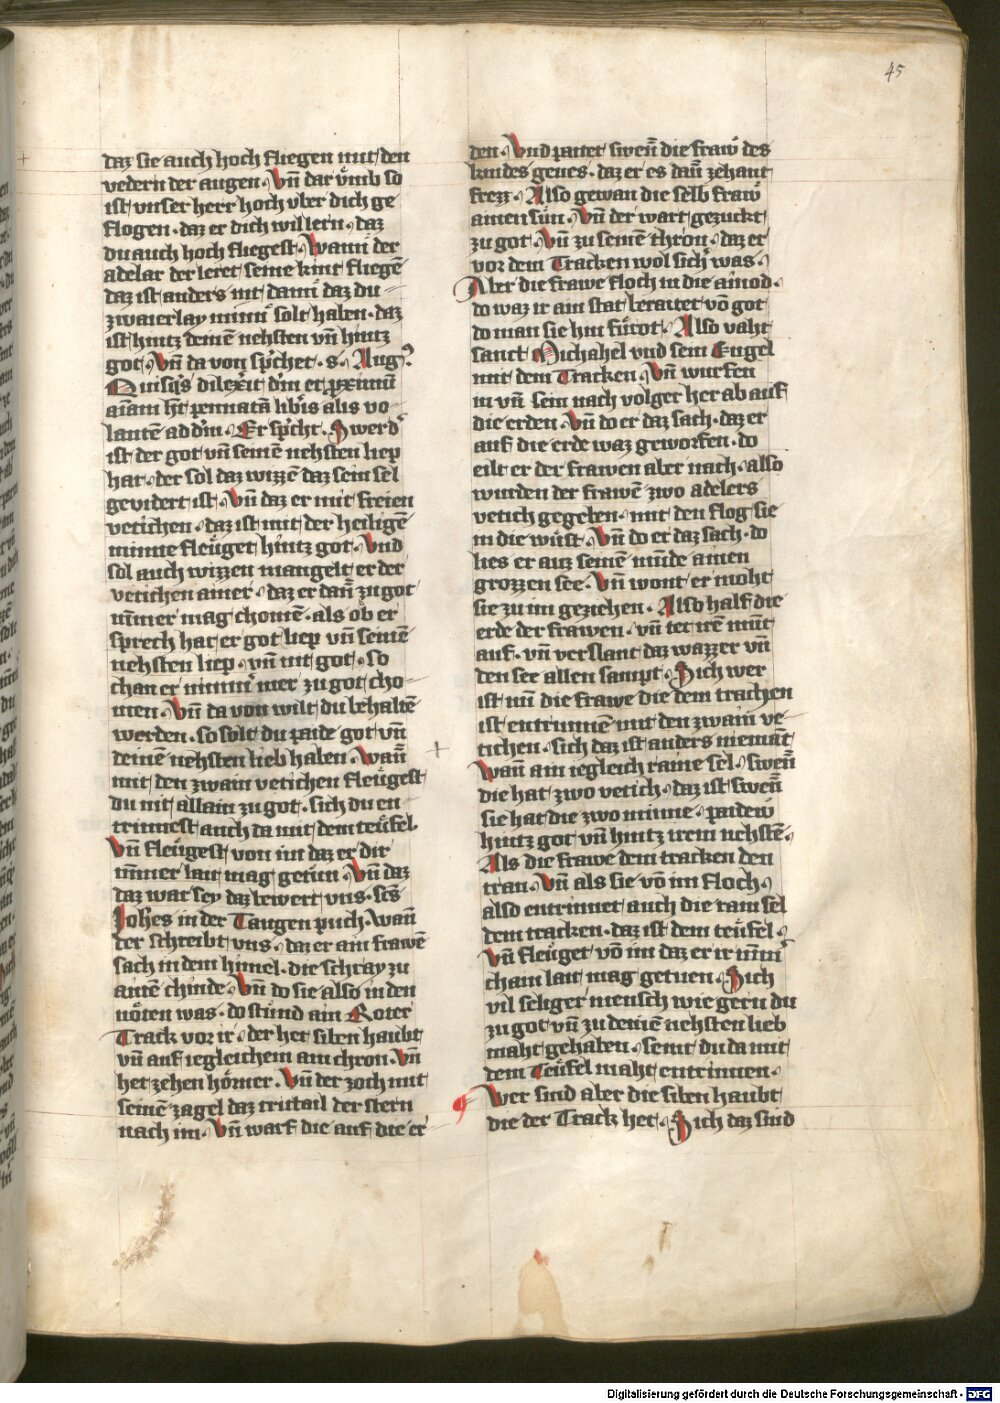 45
daz sie auch hoch fliegen mit den
vedern der augen. Vn̄ dar v̈mb so
ist vnser herr hoch vber dich ge
flogen. daz er dich wil lern. daz
du auch hoch fliegest. Wann̄ der
adelar der leret seine kint fliegē
daz ist anders nit dann̄ daz du
zwaierlay minn̄ solt haben. daz
ist hintz deinē nehsten vn̄ hintz
got. Vn̄ da von sp̄chet. s. Aug⁹.
Quisq̄s dilex̄it dm̄ et p̱ximū
aīam h̄t pennatā lib̄is alis vo
lantē ad dm̄. Er sp̄cht. Swerd̓
ist der got vn̄ seinē nehsten liep
hat. der sol daz wizzē daz sein sel
gevidert ist. Vn̄ daz er mit freien
vetichen. daz ist mit der heiligē
minne fleüget hintz got. Vnd
sol auch wizzen mangelt er der
vetichen ainer. daz er dan̄ zu got
nīmer mag chomē. als ob er
sprech hat er got liep vn̄ seinē
nehsten liep. vn̄ nit got. so
chan er nimm̄ mer zu got cho
men. Vn̄ da von wilt du behaltē
werden. so solt du paide got vn̄
deinē nehsten lieb haben. Wan̄
mit den zwain vetichen fleügest
du nit allain zu got. sich du en
trinnest auch da mit dem teüfel
Vn̄ fleügest von im daz er dir
nīmer lait mag getūn. Vn̄ daz
daz war sey daz bewert vns. scs̄
Joh̄es in der Taugen puch. Wan̄
der schreibt vns. daz er ain frawē
sach in dem himel. die schray zu
ainē chinde. Vn̄ do sie also in den
nöten was. do stůnd ain Roter
Track vor ir. der het siben haubt
vn̄ auf iegleichem ain chron. Vn̄
het zehen hörner. Vn̄ der zoch mit
seinē zagel daz tritail der stern
nach im. Vn̄ warf die auf die er
den. Vnd paitet swen̄ die fraw des
kindes genes. daz er es dan̄ zehant
frezz. Also gewan die selb fraw
ainen sün. Vn̄ der wart gezuckt
zu got. Vn̄ zu seinē thron. daz er
vor dem Tracken wol sich̓ was.
Aber die frawe floch in die ainod.
do waz ir ain stat beraitet vō got
do man sie hin fürot. Also vaht
sanct Michahel vnd sein Engel
mit dem Tracken. Vn̄ wurfen
in vn̄ sein nach volger her ab auf
die erden. Vn̄ do er daz sach. daz er
auf die erde waz geworfen. do
eilt er der frawen aber nach. also
wurden der frawē zwo adelers
vetich gegeben. mit den flog sie
in die wüst. Vn̄ do er daz sach. do
lies er auz seinē munde ainen
grozzen see. Vn̄ wont er moht
sie zu im geziehen. Also half die
erde der frawen. vn̄ tet irē munt
auf. vn̄ verslant daz wazzer vn̄
den see allen sampt. Sich wer
ist nu die frawe die dem trachen
ist entrunnē mit den zwain ve
tichen. sich daz ist anders niemāt
Wan̄ ain iegleich raine sel. swen̄
die hat zwo vetich. daz ist swen̄
sie hat die zwo minne. paidew
hintz got vn̄ hintz irem nehstē.
Als die frawe dem tracken den
tran. Vn̄ als sie vō im floch.
also entrinnet auch die rain sel
dem tracken. daz ist dem teüfel.
Vn̄ fleüget vō im daz er ir nīm̓
chain lait mag getuen. Sich
vil seliger mensch wie gern du
zu got vn̄ zu deinē nehsten lieb
maht gehaben. seint du da mit
dem Teüfel maht entrinnen.
Wer sind aber die siben haubt
die der Track het. Sich daz sind
Digitalisierung gefördert durch die Deutsche Forschungsgemeinschaft - DFG